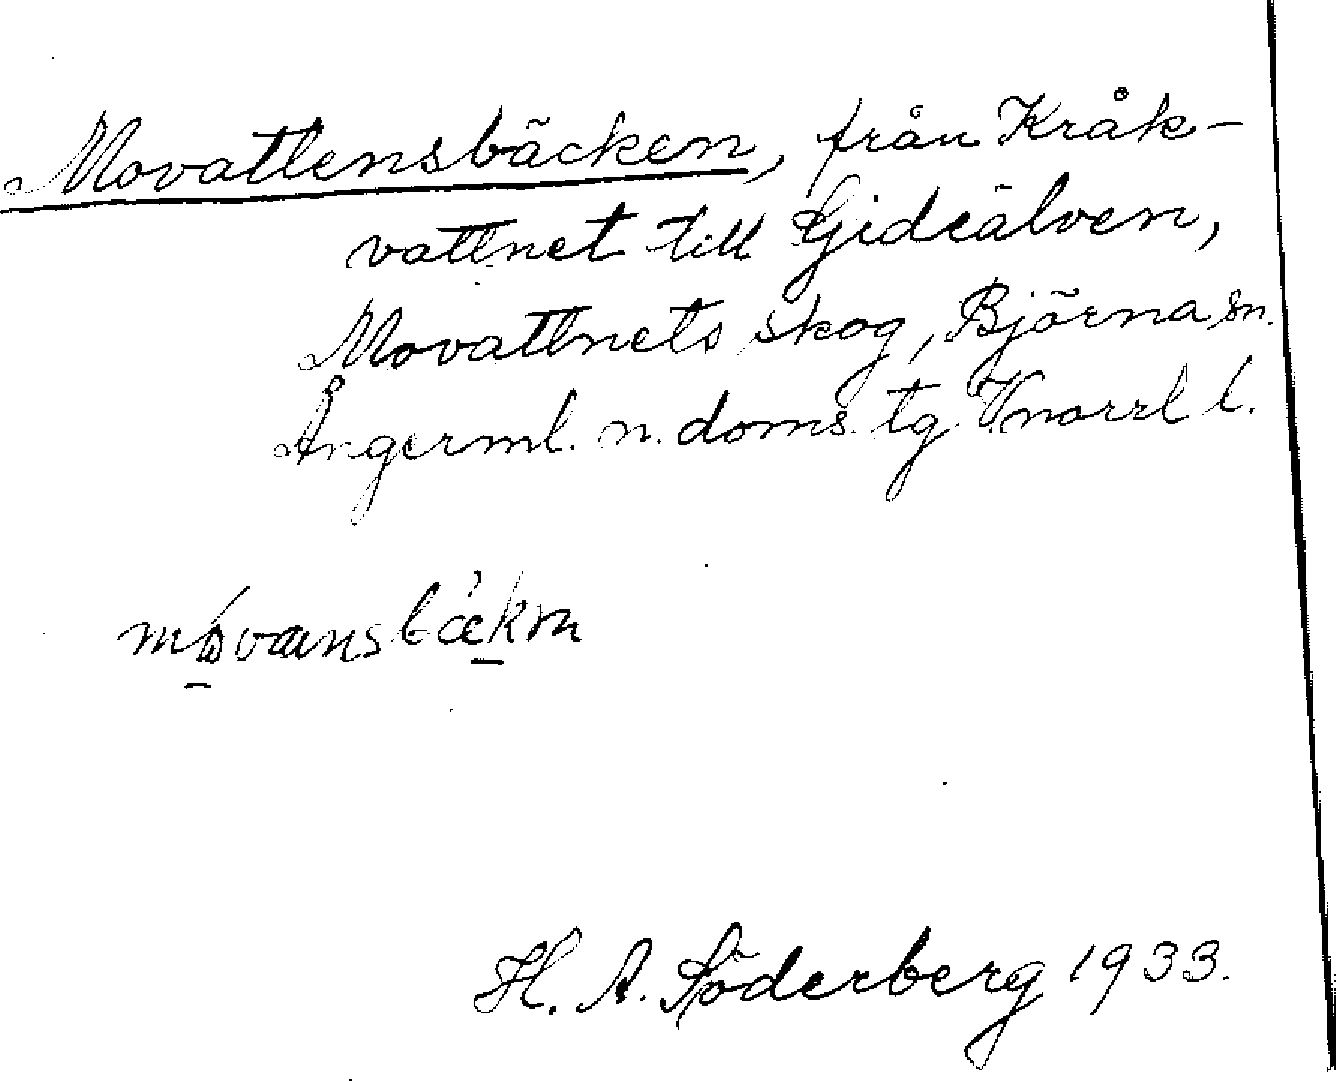 Movattensbäcken, från Kråk-
vattnet till Gideälven,
Movattnets skog, Björna sn.
Ångerml. n. doms. tg. Vnorrl l.
H. A. Söderberg 1933.